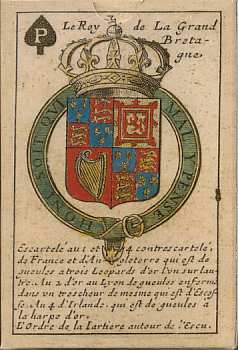 P
Le Roy de La Grand
Breta-
gne
HONI SOIT QVI MAL Y PENSE
Escartelé au 1 et 4 contrescartelé,
de France et d'Angleterre qui est de
gueules a trois Leopards d'or l'un sur lau-
tre. Au 2 d'or au Lyon de gueules enfermé
dans un trescheur de mesme qui est d'Escos-
se. Au 4 d'Irlande, qui est de gueules à
la harpe d'or.
L'Ordre de la Iartiere autour de l'Escu.